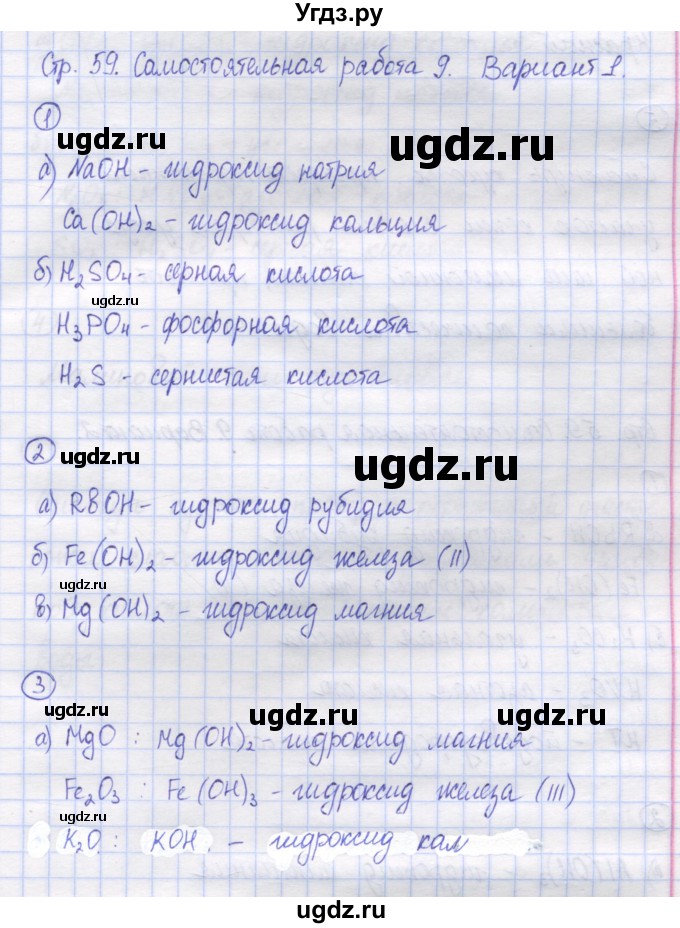 Угдз.ру
Стр. 59. Самостоятельная работа 9. Вариант 1.
1
ugdz.ru ugdz.ru
а) NaOH - гидроксид натрия
Ca(OH)2 - гидроксид кальция
б) H2SO4 - серная кислота
ugdz.ru
H3PO4 - фосфорная кислота
H2S - сернистая кислота
2
ugdz.ru ugdz.ru
а) RBOH - гидроксид рубидия
б) Fe(OH)2 - гидроксид железа (II)
ugdz.ru
в) Mg(OH)2 - гидроксид магния
3
ugdz.ru ugdz.ru
а) MgO : Mg(OH)2 - гидроксид магния
Fe2O3 : Fe(OH)3 - гидроксид железа (III)
K2O : KOH. - гидроксид кал
ugdz.ru